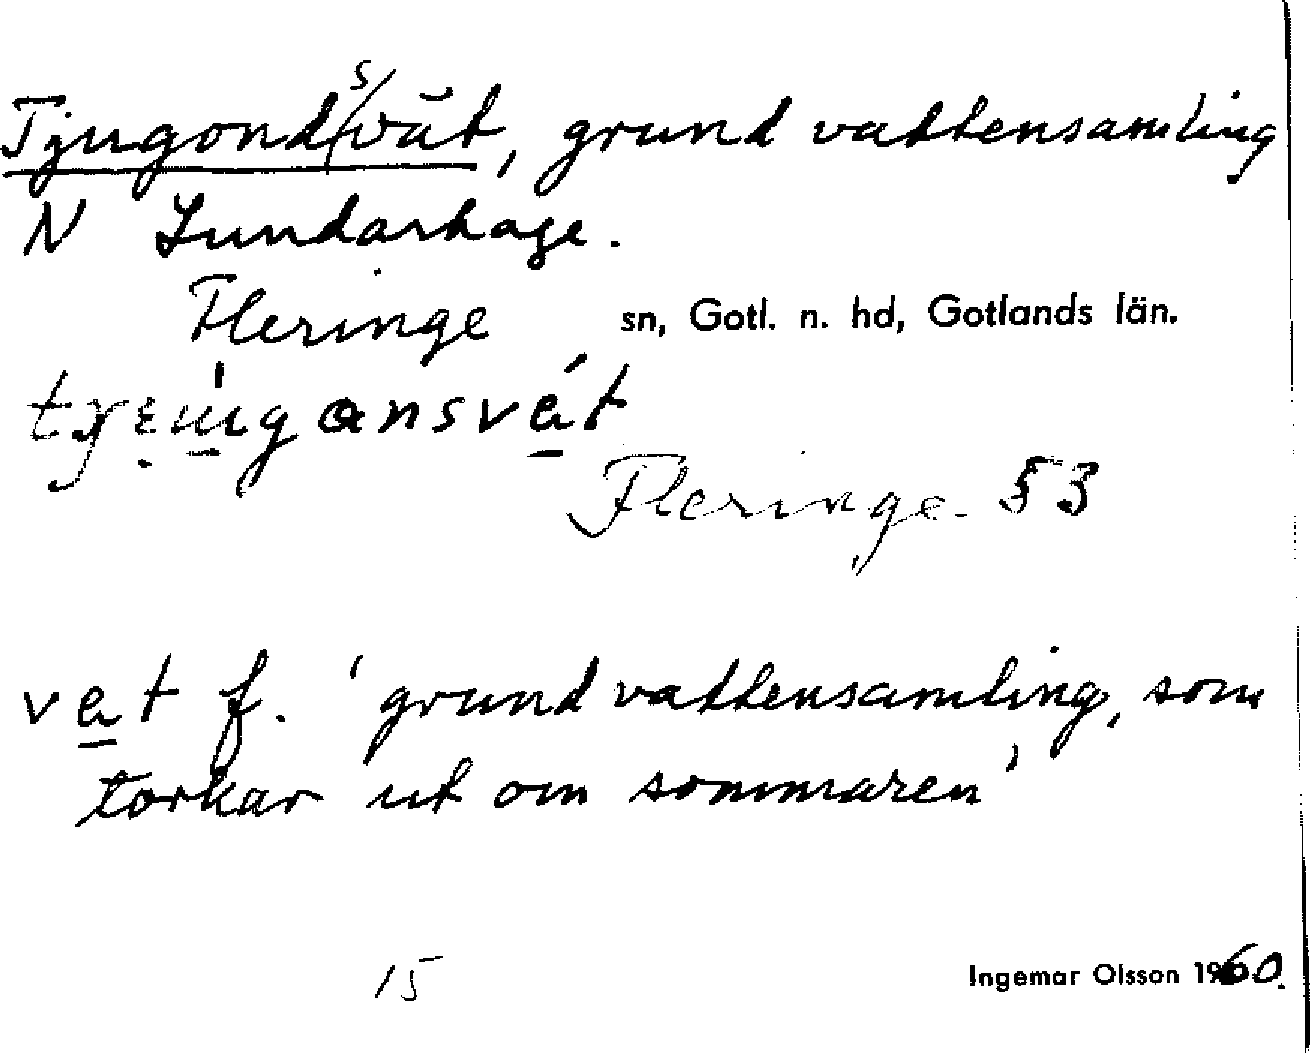 Tjugondsvät, grund vattensamling
N Lundarhage.
Fleringe sn, Gotl. n. hd, Gotlands län.
Fleringe. 53
vat f. 'grund vattensamling, som
torkar ut om sommaren'
15 Ingemar Olsson 1960.